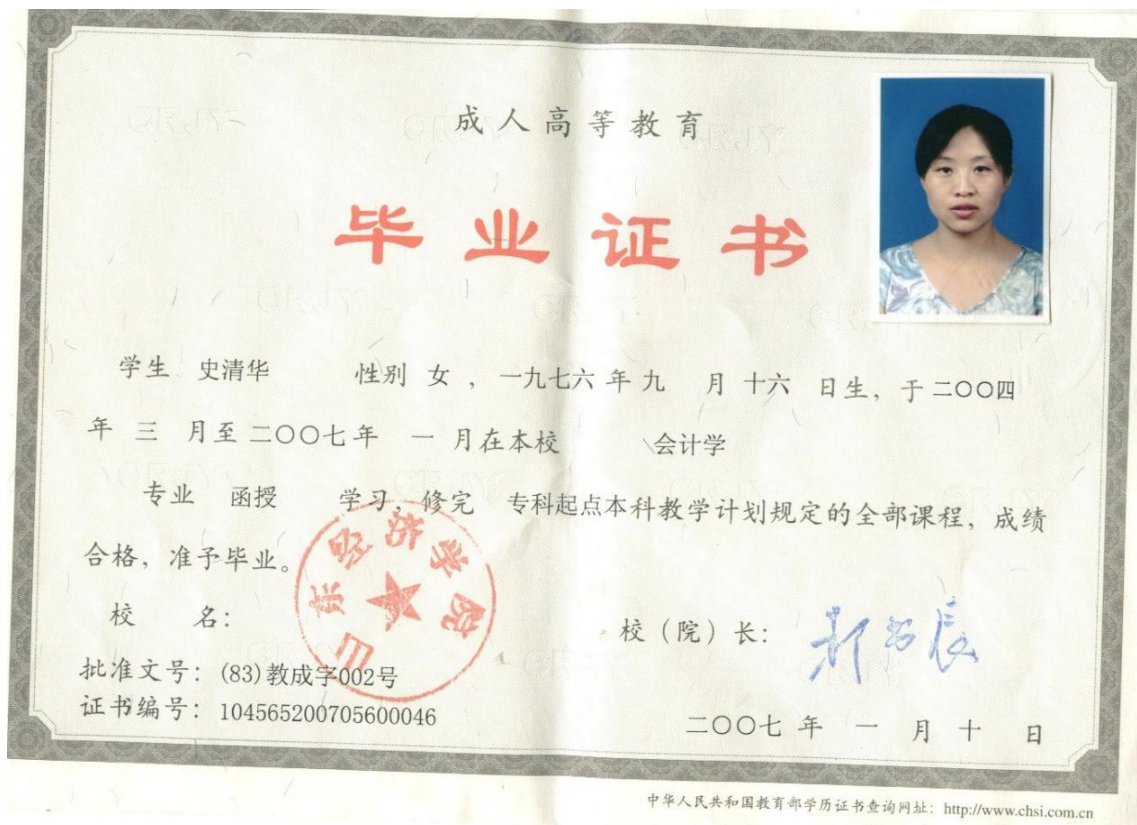 成人高等教育
毕业证书
学生 史清华 性别 女 ，一九七六 年 九 月 十六 日生，于 二〇〇四
年 三 月至 二〇〇七年 一 月在本校 会计学
专业 函授 学习，修完 专科起点本科教学计划规定的全部课程，成绩
合格，准予毕业。
校 名：
山东经济学院
校（院）长：
批准文号：(83)教成字002号
证书编号：104565200705600046
二〇〇七 年 一 月 十 日
中华人民共和国教育部学历证书查询网址：http://www.chsi.com.cn